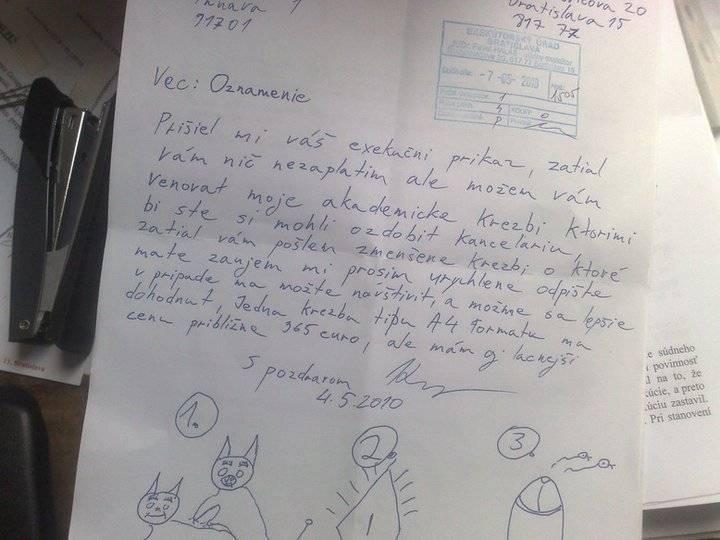 Trnava 1
91701
20
Bratislava 15
817 77
EXEKÚTORSKÝ ÚRAD
BRATISLAVA
-7-05-2010
Vec: Oznamenie
Prišiel mi váš exekučni prikaz, zatial
vám nič nezaplatim ale možem vám
venovat moje akademicke krezbi ktorimi
bi ste si mohli ozdobit kancelariu,
zatial vám pošlem zmenšene krezbi o ktoré
mate zaujem mi prosim urychlene odpište
v pripade ma možte navštivit, a možme sa lepšie
dohodnut, Jedna krezba tipu A4 formatu ma
cenu približne 365 euro, ale mám aj lacnejši
S pozdravom
4.5.2010
1.
2
3.
1
e súdneho
povinnosť
na to, že
kúcie, a preto
kúciu zastavil.
Pri stanovení